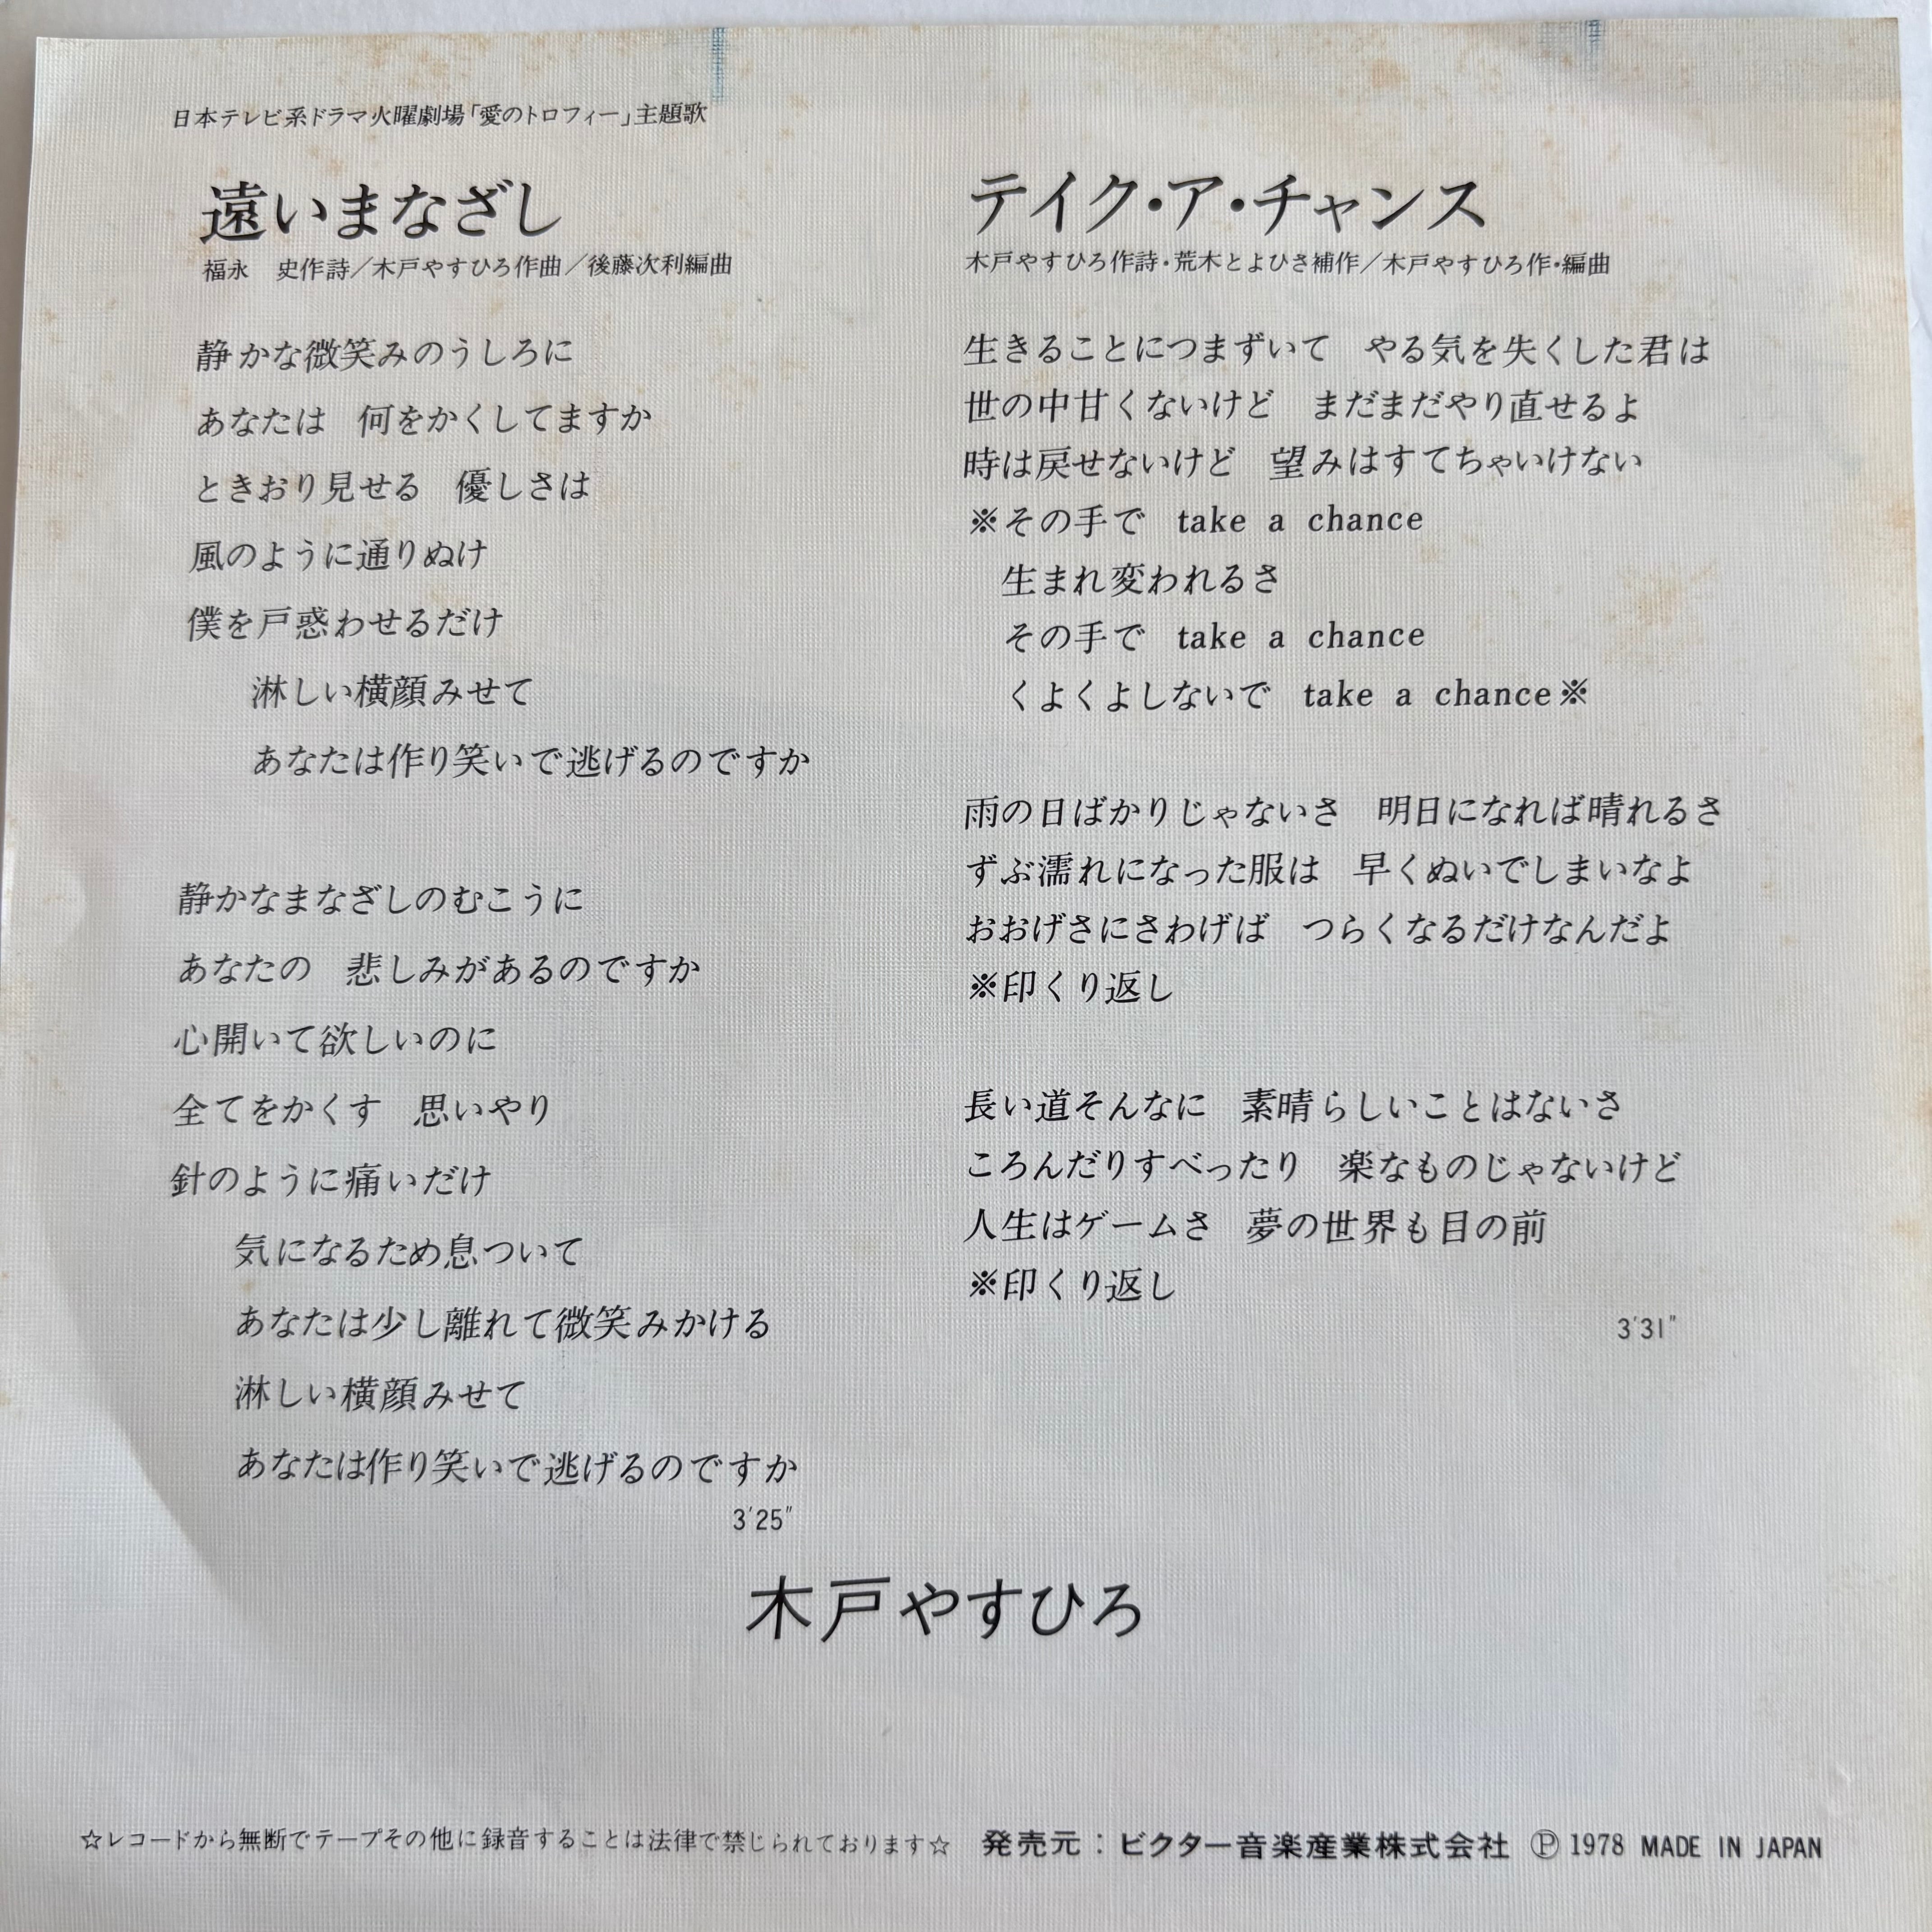 日本テレビ系ドラマ火曜劇場「愛のトロフィー」主題歌
遠いまなざし
福永　史作詩／木戸やすひろ作曲／後藤次利編曲
静かな微笑みのうしろに
あなたは　何をかくしてますか
ときおり見せる　優しさは
風のように通りぬけ
僕を戸惑わせるだけ
淋しい横顔みせて
あなたは作り笑いで逃げるのですか
静かなまなざしのむこうに
あなたの　悲しみがあるのですか
心開いて欲しいのに
全てをかくす　思いやり
針のように痛いだけ
気になるため息ついて
あなたは少し離れて微笑みかける
淋しい横顔みせて
あなたは作り笑いで逃げるのですか
3′25″
テイク・ア・チャンス
木戸やすひろ作詩・荒木とよひさ補作／木戸やすひろ作・編曲
生きることにつまずいて　やる気を失くした君は
世の中甘くないけど　まだまだやり直せるよ
時は戻せないけど　望みはすてちゃいけない
※その手で　take a chance
生まれ変われるさ
その手で　take a chance
くよくよしないで　take a chance※
雨の日ばかりじゃないさ　明日になれば晴れるさ
ずぶ濡れになった服は　早くぬいでしまいなよ
おおげさにさわげば　つらくなるだけなんだよ
※印くり返し
長い道そんなに　素晴らしいことはないさ
ころんだりすべったり　楽なものじゃないけど
人生はゲームさ　夢の世界も目の前
※印くり返し
3′31″
木戸やすひろ
☆レコードから無断でテープその他に録音することは法律で禁じられております☆　発売元：ビクター音楽産業株式会社 Ⓟ 1978 MADE IN JAPAN